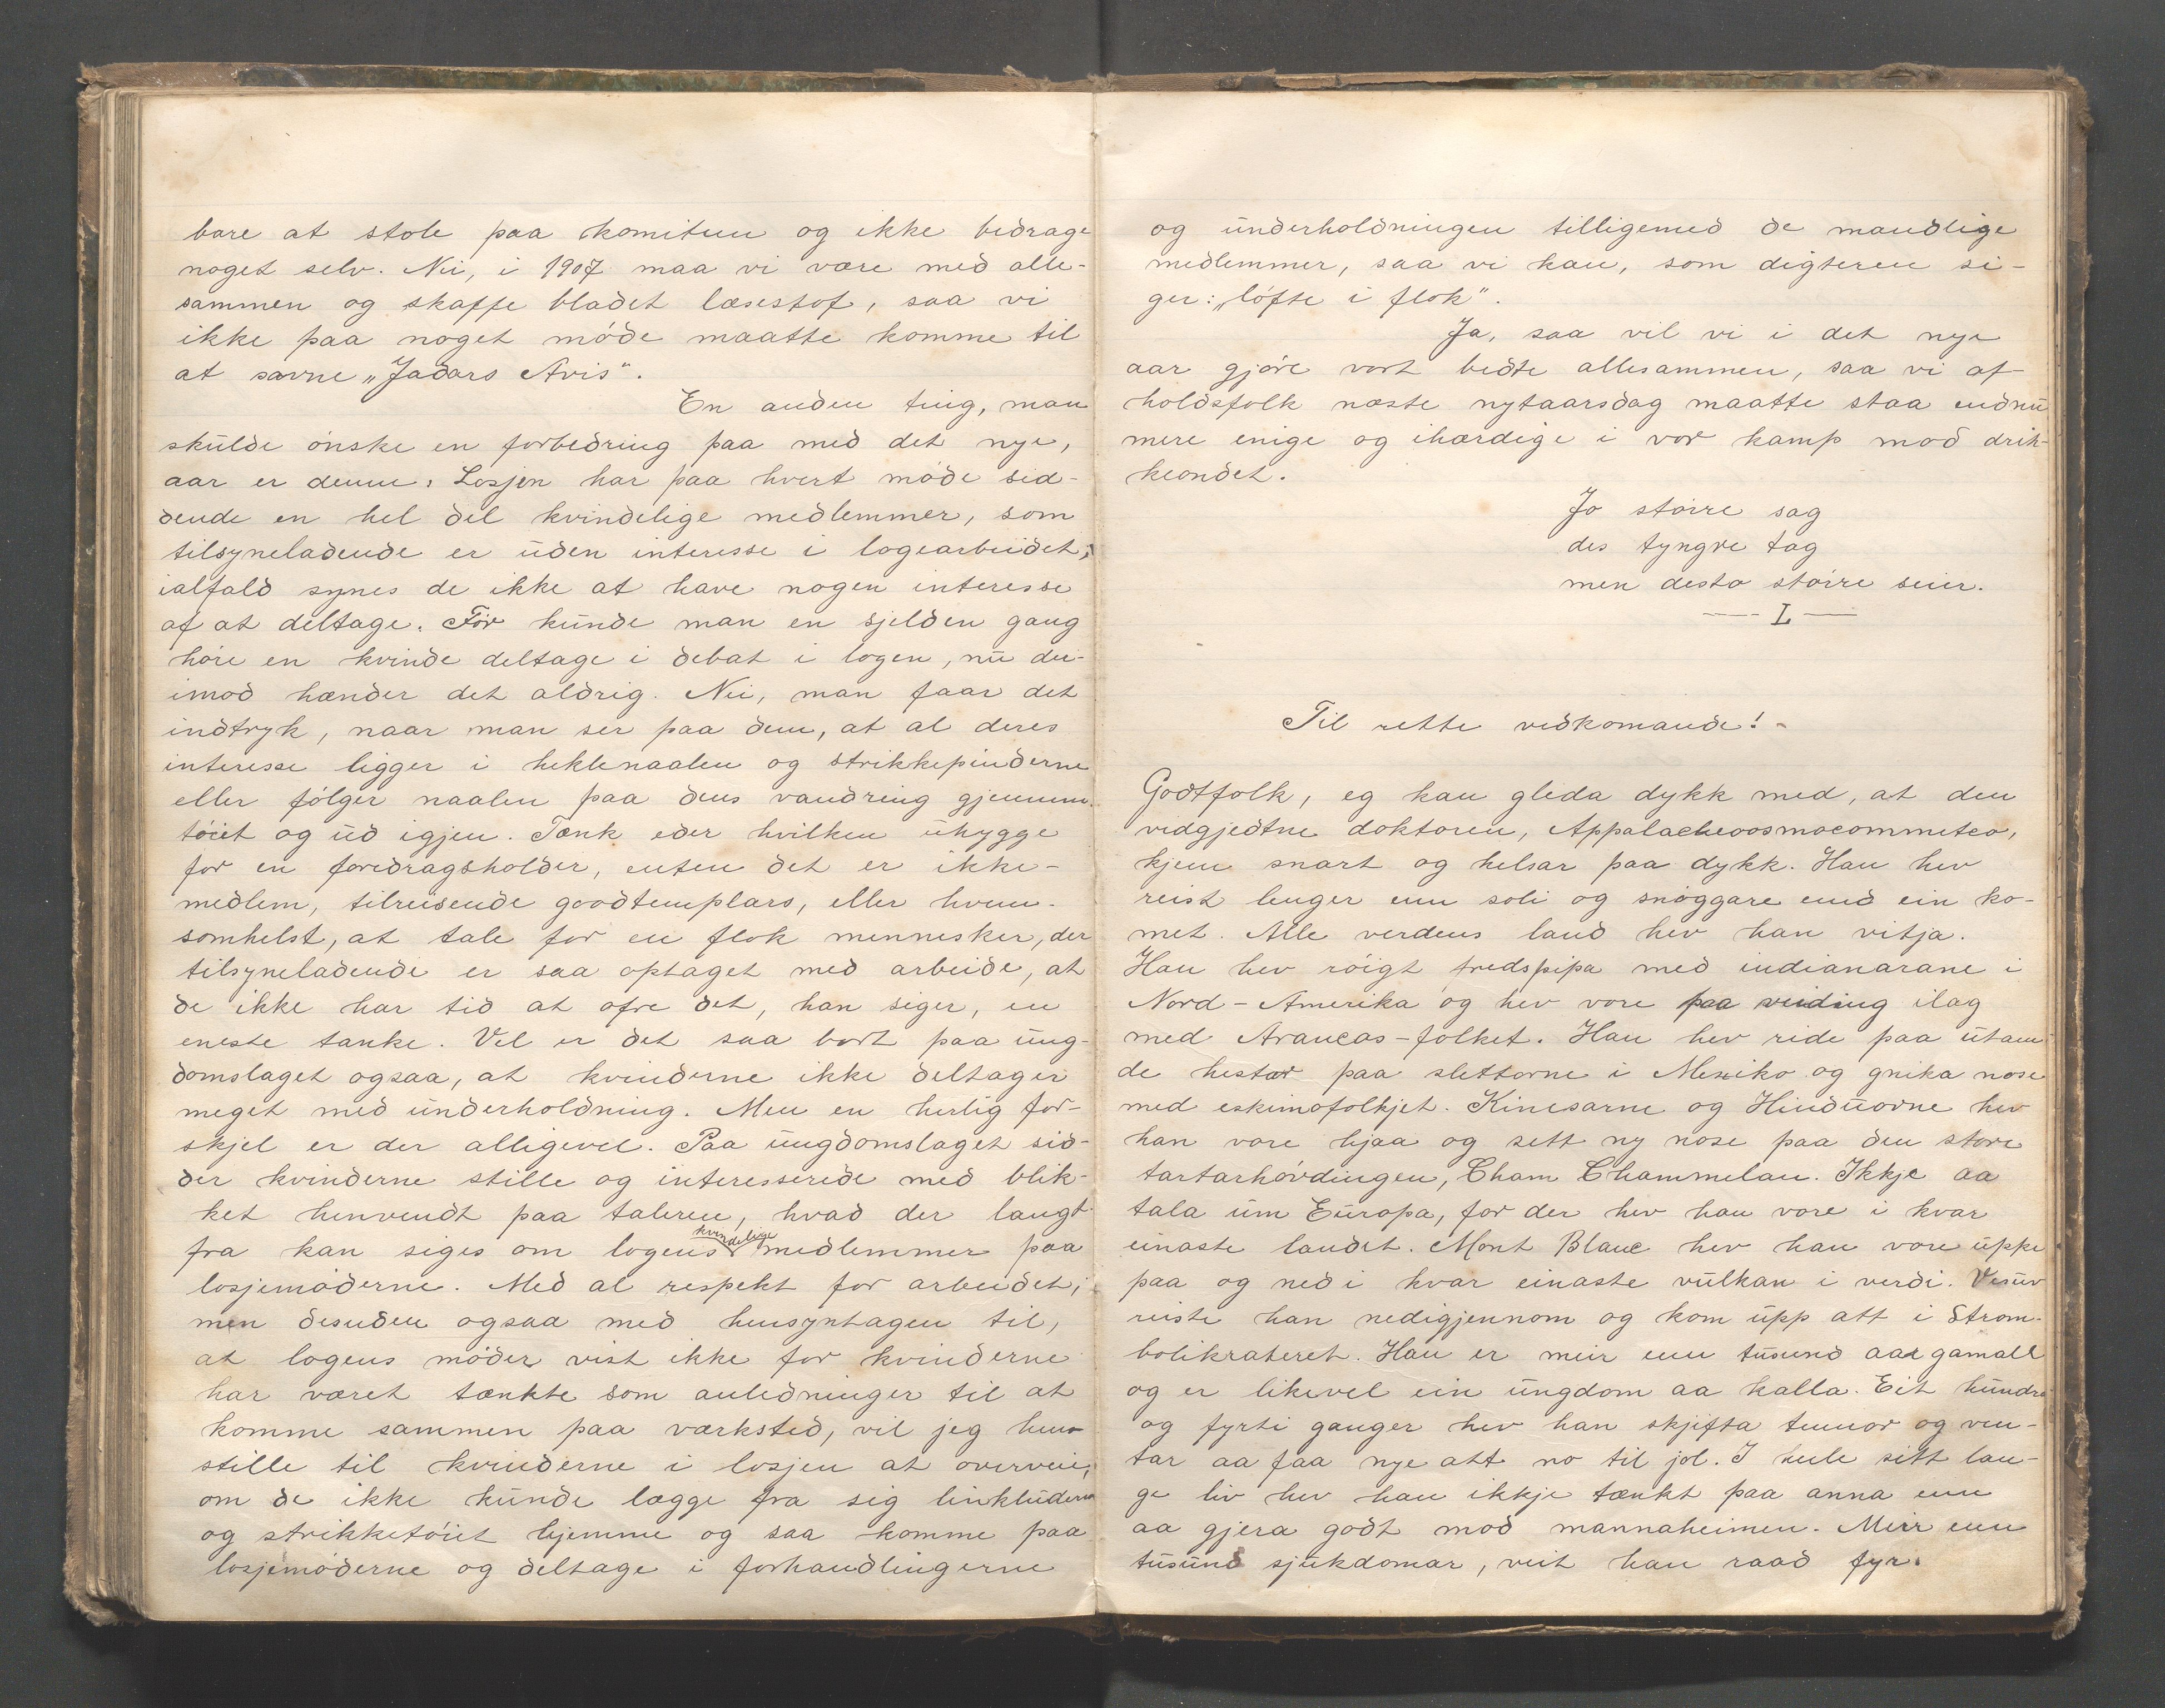 bare at stole paa komiteen og ikke bedrage
noget selv. Nei, i 1907 maa vi være med alle-
sammen og skaffe bladet læsestof, saa vi
ikke paa noget møde maatte komme til
at savne „Jadars Avis".
En anden ting, man
skulde ønske en forbedring paa med det nye,
aar er denne: Losjen har paa hvert møde sid-
dende en hel del kvindelige medlemmer, som
tilsyneladende er uden interesse i logearbeidet;
ialfald synes de ikke at have nogen interesse
af at deltage. Før kunde man en sjelden gang
høre en kvinde deltage i debat i logen, nu der-
imod hænder det aldrig. Nei, man faar det
indtryk, naar man ser paa dem, at al deres
interesse ligger i heklenaalen og strikkepinderne
eller følger naalen paa dens vandring gjennem
tøiet og ud igjen. Tænk eder hvilken uhygge
for en foredragsholder, enten det er ikke-
medlem, tilreisende goodtemplars, eller hvem-
somhelst, at tale for en flok mennesker, der
tilsyneladende er saa optaget med arbeide, at
de ikke har tid at ofre det, han siger, en
eneste tanke. Vel er det saa bort paa ung-
domslaget ogsaa, at kvinderne ikke deltager
meget med underholdning. Men en herlig for-
skjel er der alligevel. Paa ungdomslaget sid-
der kvinderne stille og interesserede med blik-
ket henvendt paa taleren, hvad der langt
fra kan siges om logens kvindelige medlemmer paa
losjemøderne. Med al respekt for arbeidet;
men desuden ogsaa med hensyntagen til,
at logens møder vist ikke for kvinderne
har været tænkte som anledninger til at
komme sammen paa værksted, vil jeg hen-
stille til kvinderne i losjen at overveie,
om de ikke kunde lægge fra sig linkluderne
og strikketøiet hjemme og saa komme paa
losjemøderne og deltage i forhandlingerne
og underholdningen tilligemed de mandlige
medlemmer, saa vi kan, som digteren si-
ger: „løfte i flok".
Ja, saa vil vi i det nye
aar gjøre vort bedste allesammen, saa vi af-
holdsfolk næste nytaarsdag maatte staa endnu
mere enige og ihærdige i vor kamp mod drik-
keondet.
Jo større sag
des tyngre tag
men desto større seier.
— L —
Til rette vedkomande! -
Godtfolk, eg kan gleda dykk med, at den
vidgjedtne doktoren, Appalacheoosmocommeteo,
kjem snart og helsar paa dykk. Han hev
reist lenger enn soli og snøggare end ein ko-
met. Alle verdens land hev han vitja.
Han hev røigt fredspipa med indianarane i
Nord-Amerika og hev vore paa veiding ilag
med Araucas-folket. Han hev ride paa utam-
de hestar paa slettorne i Mexiko og gnika nose
med eskimofolkjet. Kinesarne og Hinduorne hev
han vore hjaa og sett ny nose paa den store
tartarhøvdingen, Cham Chammelan. Ikkje aa
tala um Europa, for der hev han vore i kvar
einaste landet. Mont Blanc hev han vore uppe
paa og ned i kvar einaste vulkan i verdi. Vesuv
reiste han nedigjennom og kom upp att i Strom-
bolikrateret. Han er meir enn tusund aar gamall
og er likevel ein ungdom aa kalla. Eit hundre
og fyrti ganger hev han skjifta tennor og ven-
tar aa faa nye att no til jol. I heile sitt lan-
ge liv hev han ikkje tænkt paa anna enn
aa gjera godt mod mannaheimen. Meir enn
tusund sjukdomar, veit han raad fyr.